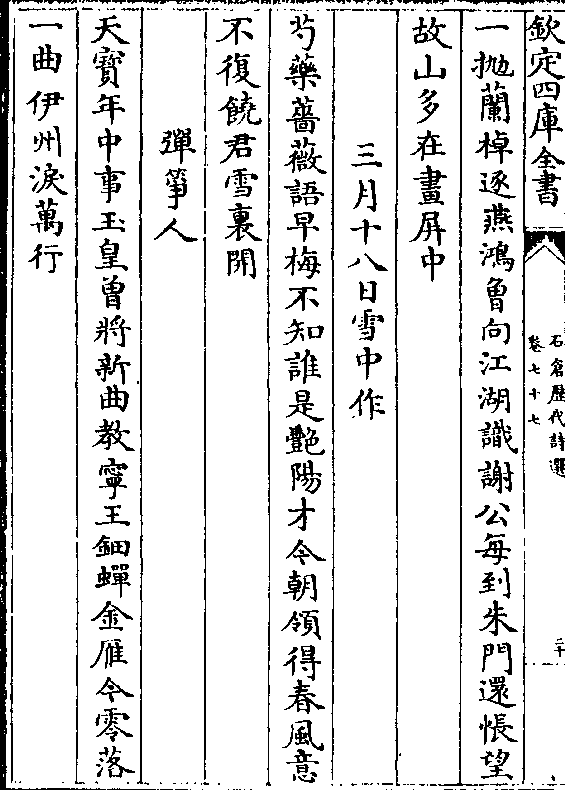 欽定四庫全書
石倉歷代詩選
卷七十七
二十
一抛蘭棹逐燕鴻曾向江湖識謝公每到朱門還悵望
故山多在畫屏中
三月十八日雪中作
芍藥薔薇語早梅不知誰是艷陽才今朝領得春風意
不復饒君雪裏開
彈箏人
天寳年中事玉皇曾將新曲教寧王鈿蟬金雁今零落
一曲伊州淚萬行